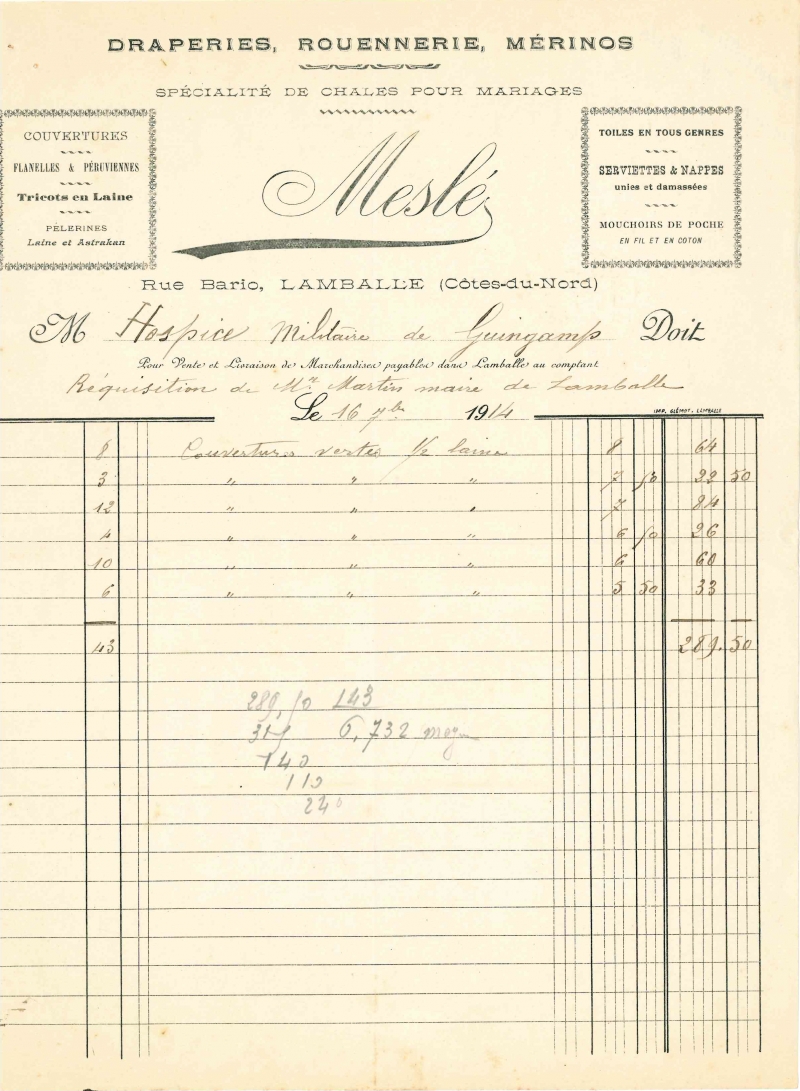 DRAPERIES, ROUENNERIE, MÉRINOS
SPÉCIALITÉ DE CHALES POUR MARIAGES
COUVERTURES
FLANELLES & PÉRUVIENNES
Tricots en Laine
PÉLERINES
Laine et Astrakan
Meslé
TOILES EN TOUS GENRES
SERVIETTES & NAPPES
unies et damassées
MOUCHOIRS DE POCHE
EN FIL ET EN COTON
Rue Bario, LAMBALLE (Côtes-du-Nord)
M Hospice Militaire de Guingamp Doit
Pour Vente et Livraison de Marchandises payables dans Lamballe au comptant
Réquisition de Mr Martin maire de Lamballe
Le 16 7bre 1914
IMP. CLÉMOT, LAMBALLE
8 Couvertures vertes 1/2 laine 8 64
3 " " " 7 50 22 50
12 " " " 7 84
4 " " " 6 50 26
10 " " " 6 60
6 " " " 5 50 33
43 289.50
289,50 43
315 6,732 moyen
140
110
240